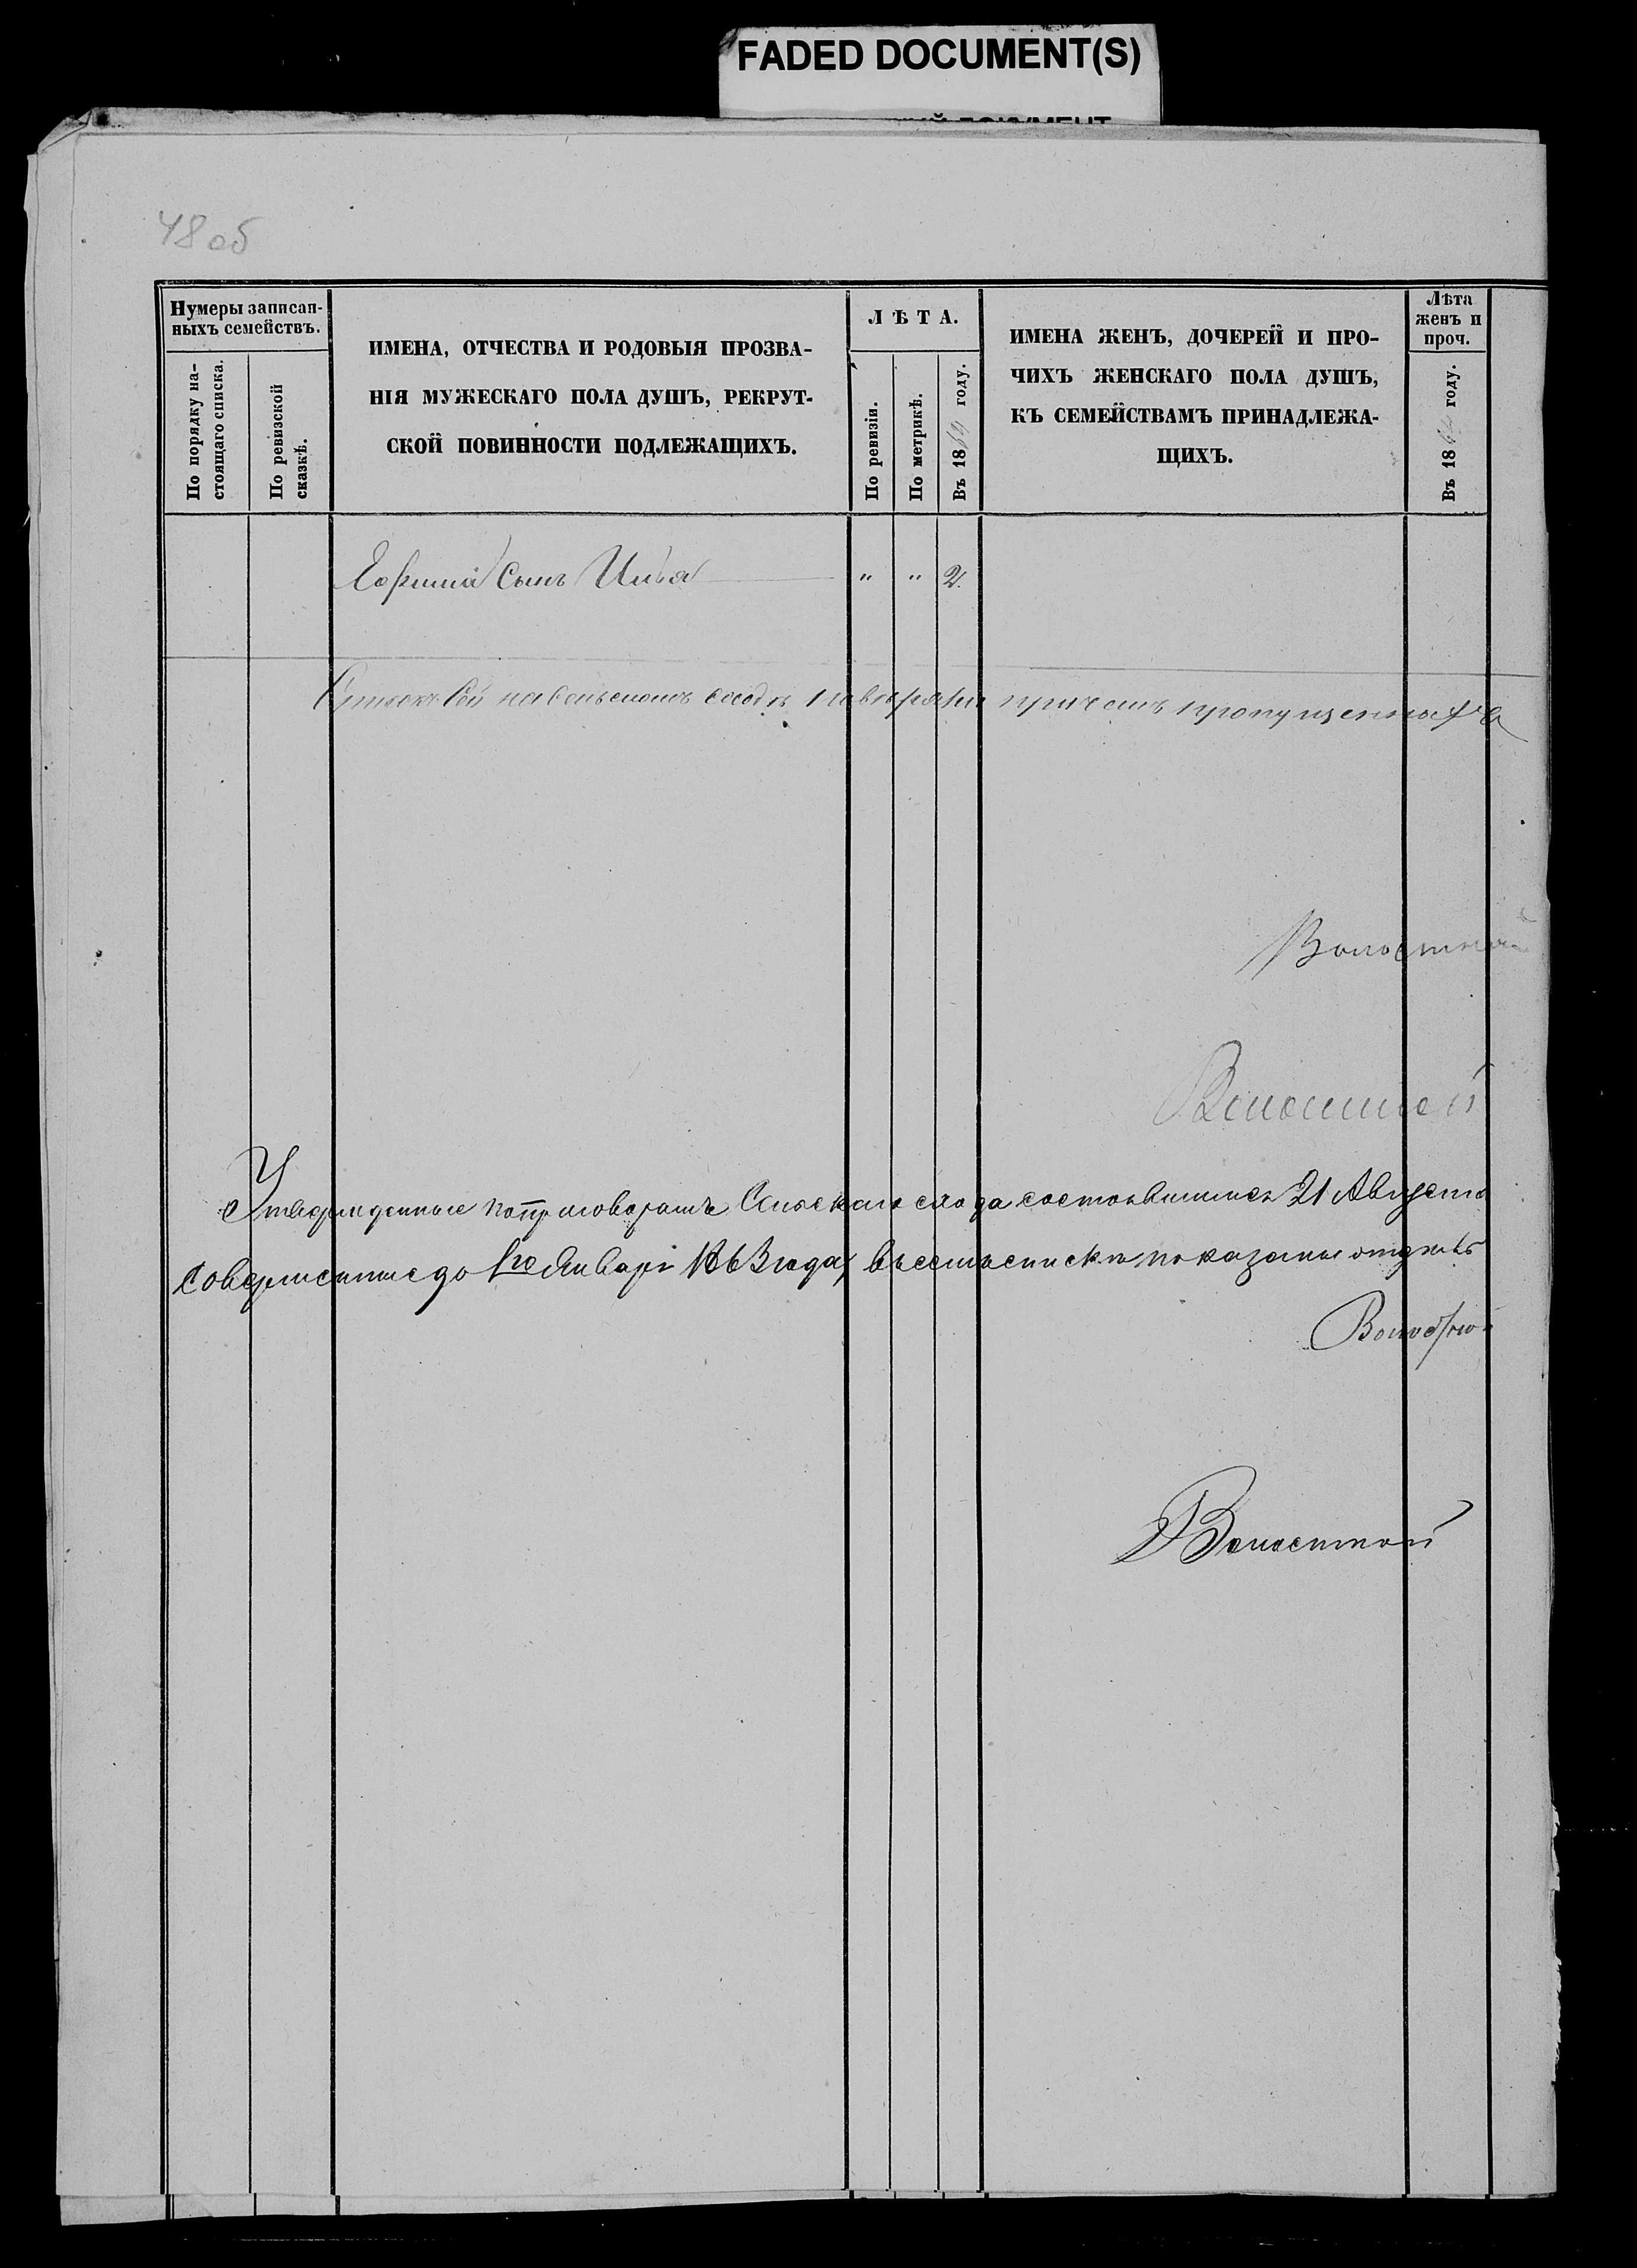 FADED DOCUMENT(S)
48 об
Нумеры записан-
ныхъ семействъ.
По порядку на-
стоящаго списка.
По ревизской
сказкѣ.
ИМЕНА, ОТЧЕСТВА И РОДОВЫЯ ПРОЗВА-
НІЯ МУЖЕСКАГО ПОЛА ДУШЪ, РЕКРУТ-
СКОЙ ПОВИННОСТИ ПОДЛЕЖАЩИХЪ.
ЛѢТА.
По ревизіи.
По метрикѣ.
Въ 18 году.
ИМЕНА ЖЕНЪ, ДОЧЕРЕЙ И ПРО-
ЧИХЪ ЖЕНСКАГО ПОЛА ДУШЪ,
КЪ СЕМЕЙСТВАМЪ ПРИНАДЛЕЖА-
ЩИХЪ.
Лѣта
женъ и
проч.
Въ 18 году.
сынъ Илья " " 2
Списокъ сей причемъ пропущенныхъ
Волостной
Волостной
Утвержденные по приговорамъ Сельскаго схода состоявшимся 21 Августа
до 1го Января 1863 года, въ семъ спискѣ показаны
Волостной
Волостной